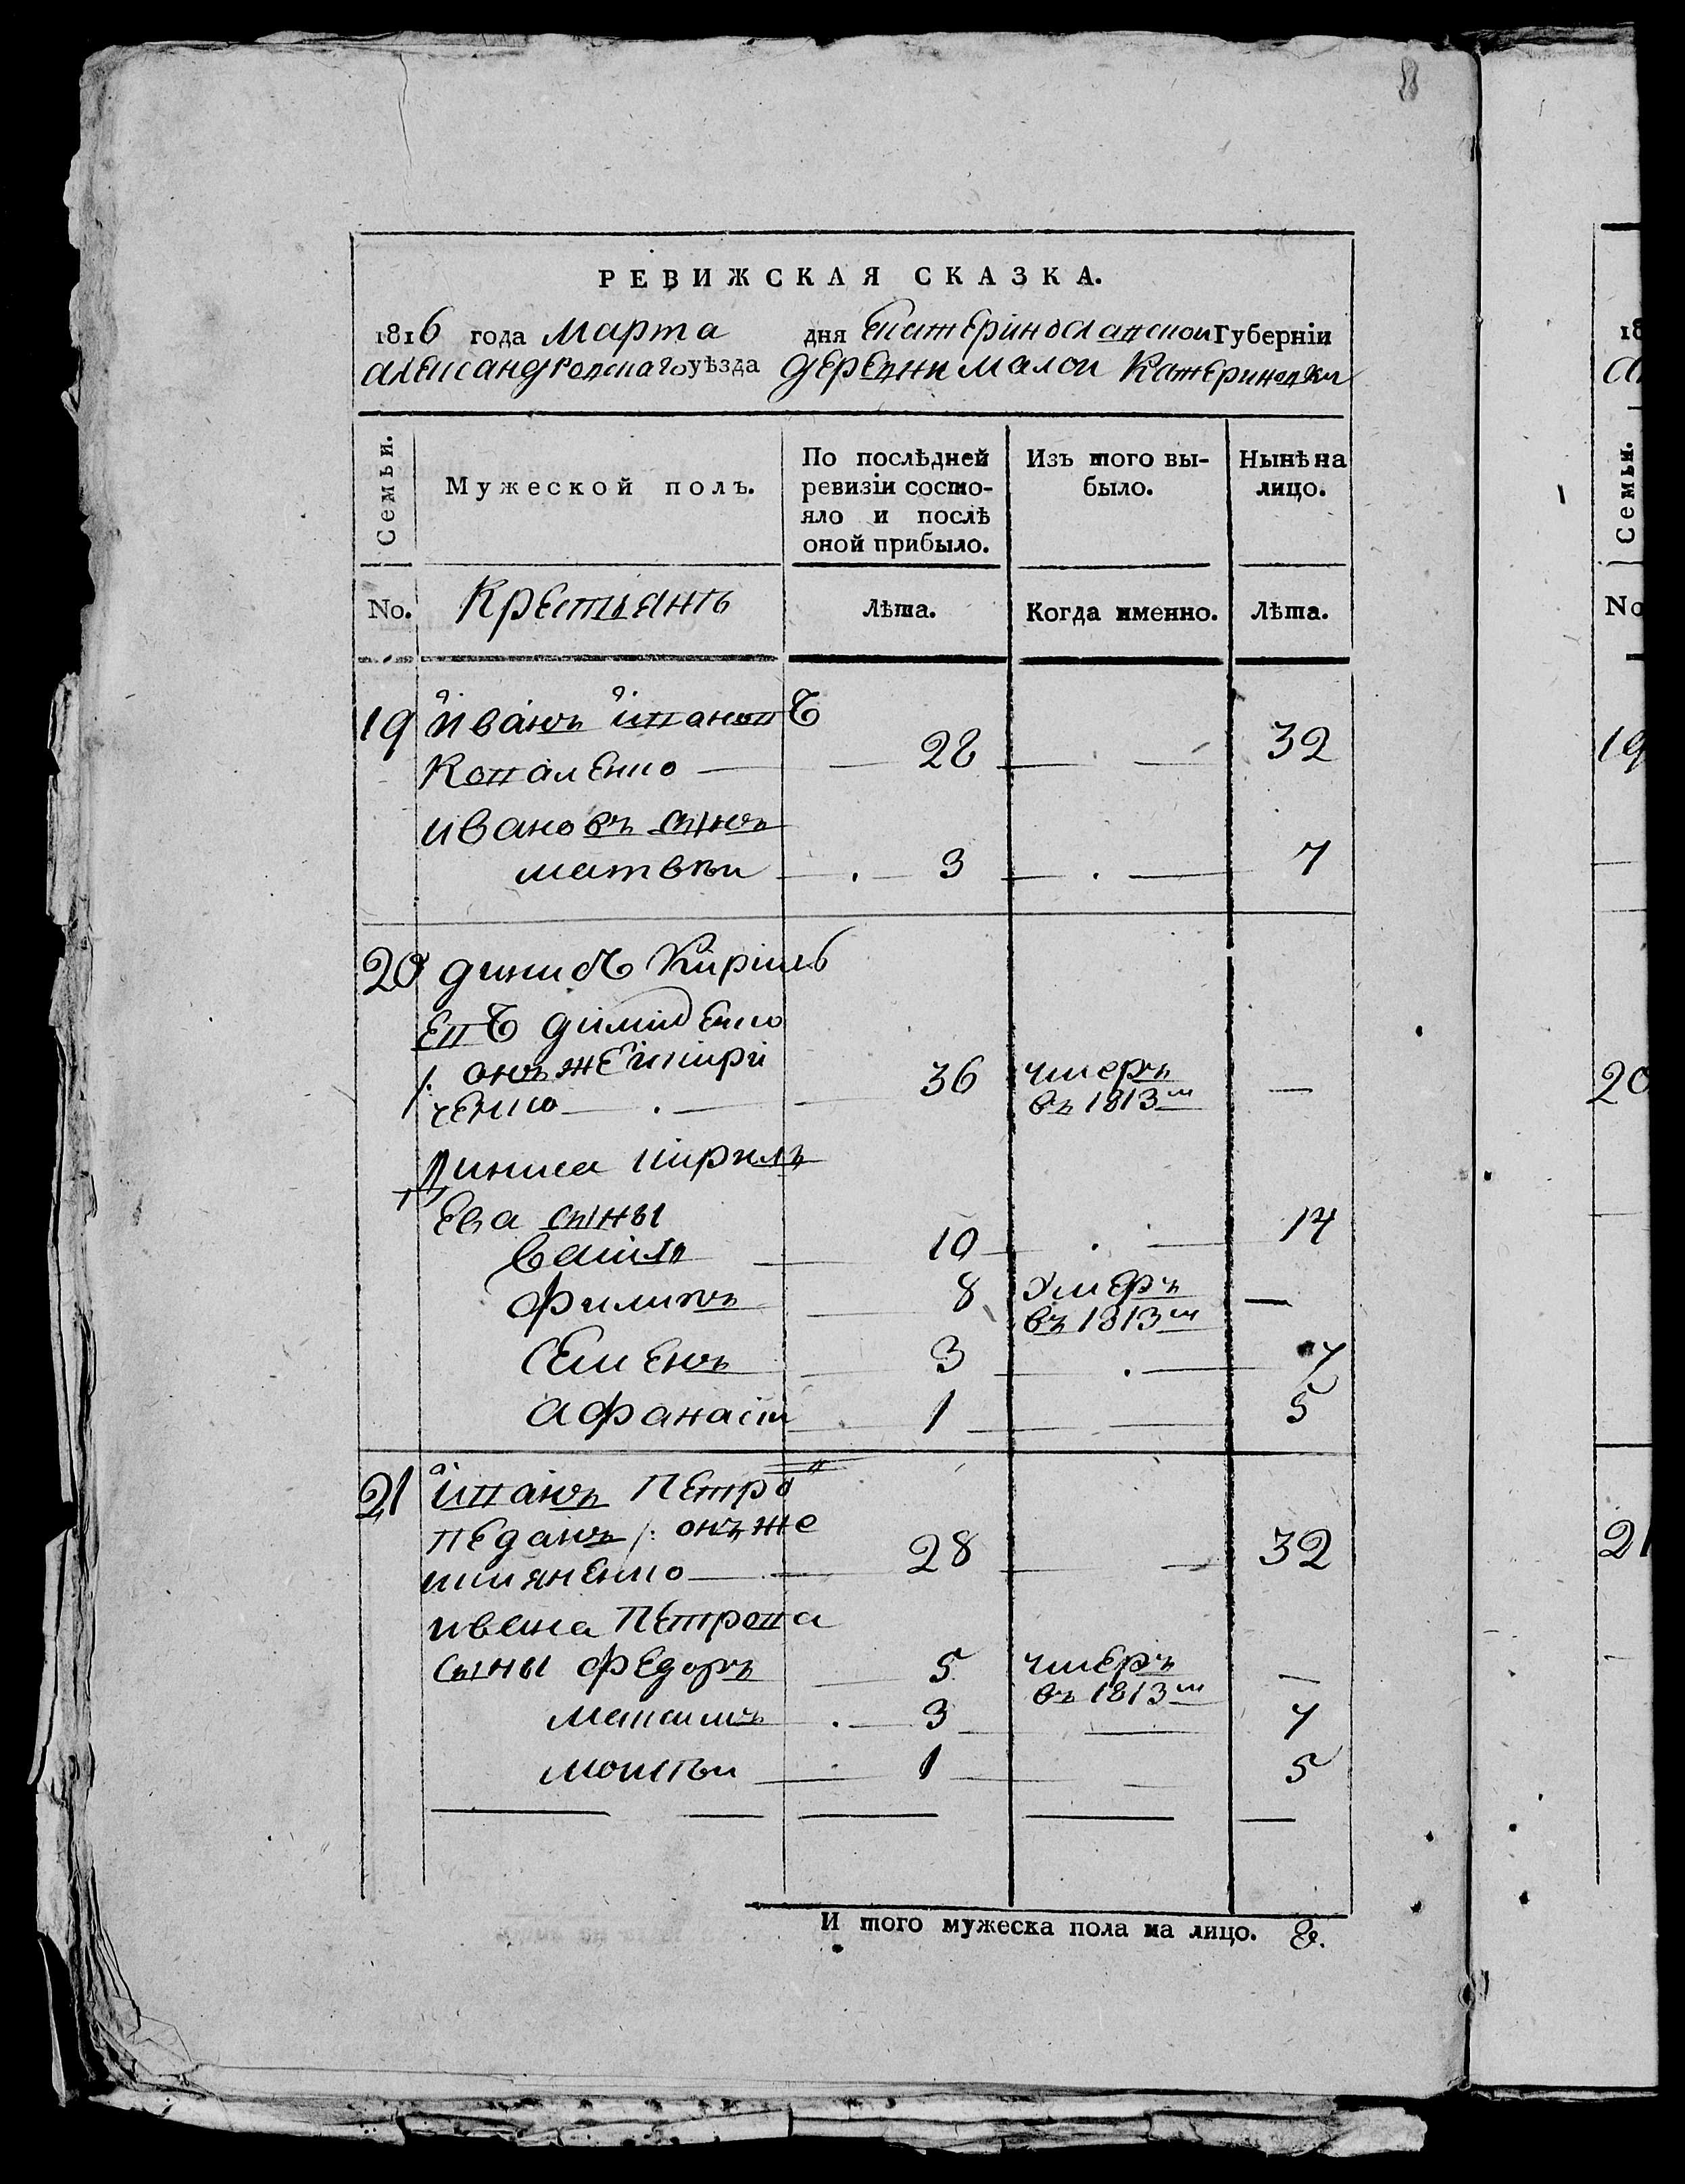 8
РЕВИЖСКАЯ СКАЗКА.
1816 года Марта дня Екатеринославской Губерніи
александровскаго уѣзда деревни малой Катериновки
Семьи.
Мужеской полъ.
По послѣдней ревизіи состояло и послѣ оной прибыло.
Изъ того выбыло.
Нынѣ на лицо.
No. Крестьянъ Лѣта. Когда именно. Лѣта.
19 Иванъ Івановъ
Коваленко 28 32
ивановъ сынъ
матвѣи 3 7
20 динисъ Киріил
евъ димиденко
/: онъже кири
ченко 36 умеръ въ 1813м —
Диниса кирил
ева сыны
васили 10 14
филипъ 8 умеръ въ 1813м —
Семенъ 3 7
афанасіи 1 5
21 іванъ Петро
педанъ /: онъже
иваненко 28 32
ивана Петрова
сыны федоръ 5 умеръ въ 1813м —
максимъ 3 7
моисѣи 1 5
И того мужеска пола на лицо. 8.
18
Семьи.
No
19
20
21